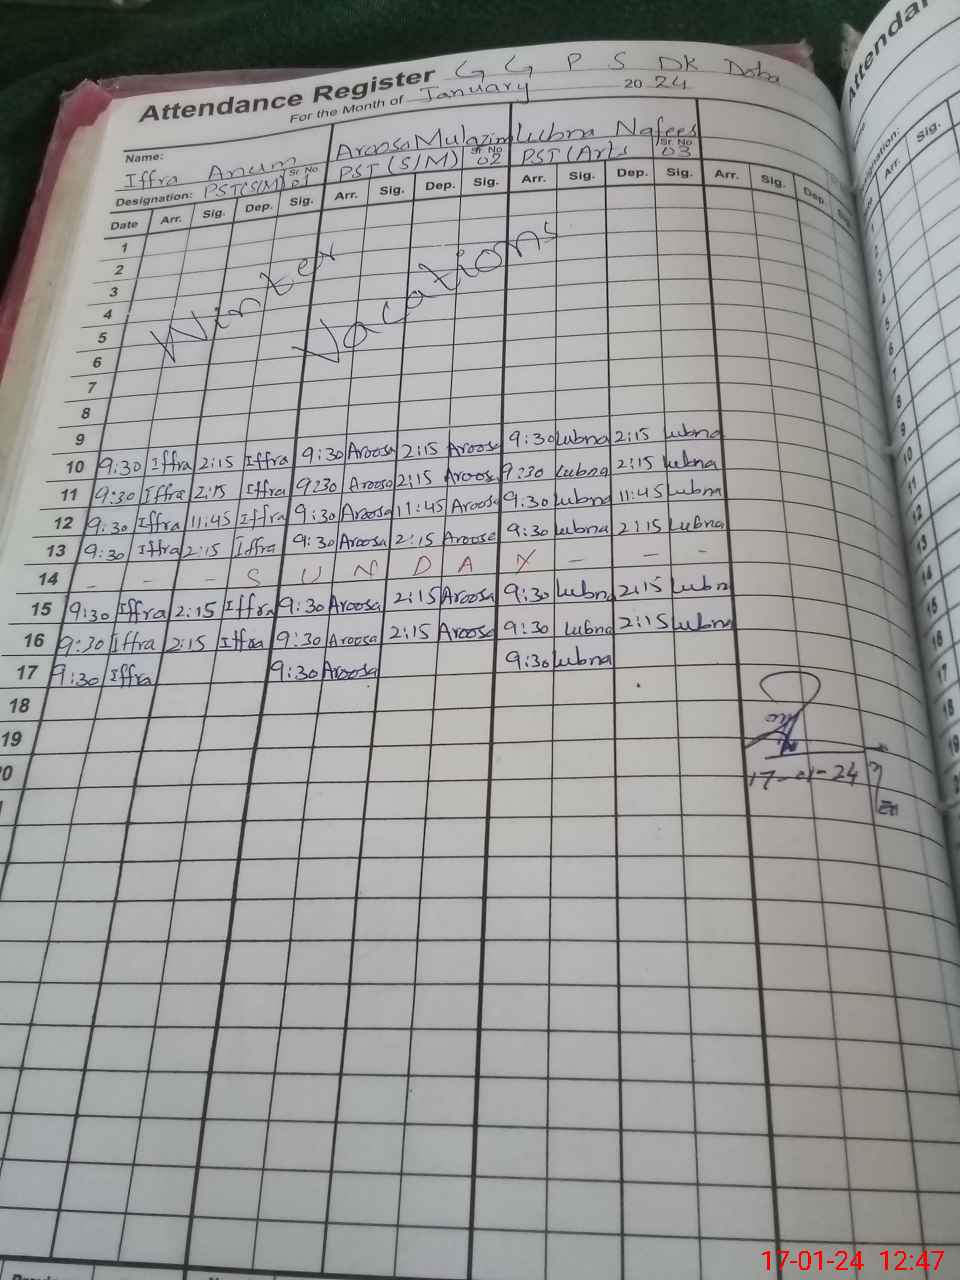 Attendance Register G G P S DK Doba
For the Month of January 2024
Name: Iffra Anum Aroosa Mulazim Lubna Nafees
Designation: PST(S/M) Sr No 01 PST (S/M) Sr No 02 PST (Arts Sr No 03
Date Arr. Sig. Dep. Sig. Arr. Sig. Dep. Sig. Arr. Sig. Dep. Sig. Arr. Sig. Dep.
1
2
3
4
5
6
7
8
9
Winter Vacations
10 9:30 Iffra 2:15 Iffra 9:30 Aroosa 2:15 Aroosa 9:30 Lubna 2:15 Lubna
11 9:30 Iffra 2:15 Iffra 9:30 Aroosa 2:15 Aroosa 9:30 Lubna 2:15 Lubna
12 9:30 Iffra 11:45 Iffra 9:30 Aroosa 11:45 Aroosa 9:30 Lubna 11:45 Lubna
13 9:30 Iffra 2:15 Iffra 9:30 Aroosa 2:15 Aroosa 9:30 Lubna 2:15 Lubna
14 - - - S U N D A Y - - -
15 9:30 Iffra 2:15 Iffra 9:30 Aroosa 2:15 Aroosa 9:30 Lubna 2:15 Lubna
16 9:30 Iffra 2:15 Iffra 9:30 Aroosa 2:15 Aroosa 9:30 Lubna 2:15 Lubna
17 9:30 Iffra 9:30 Aroosa 9:30 Lubna
18
19
17-01-24
Attendan
Sig.
Arr.
17-01-24 12:47